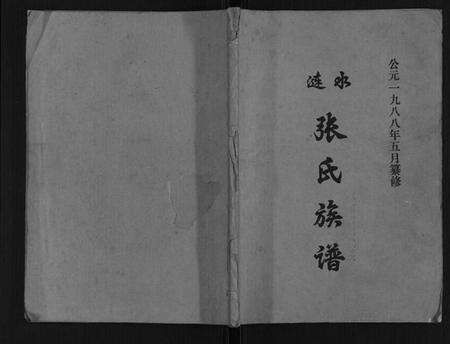 公元一九八八年五月纂修
涟水
张氏族谱